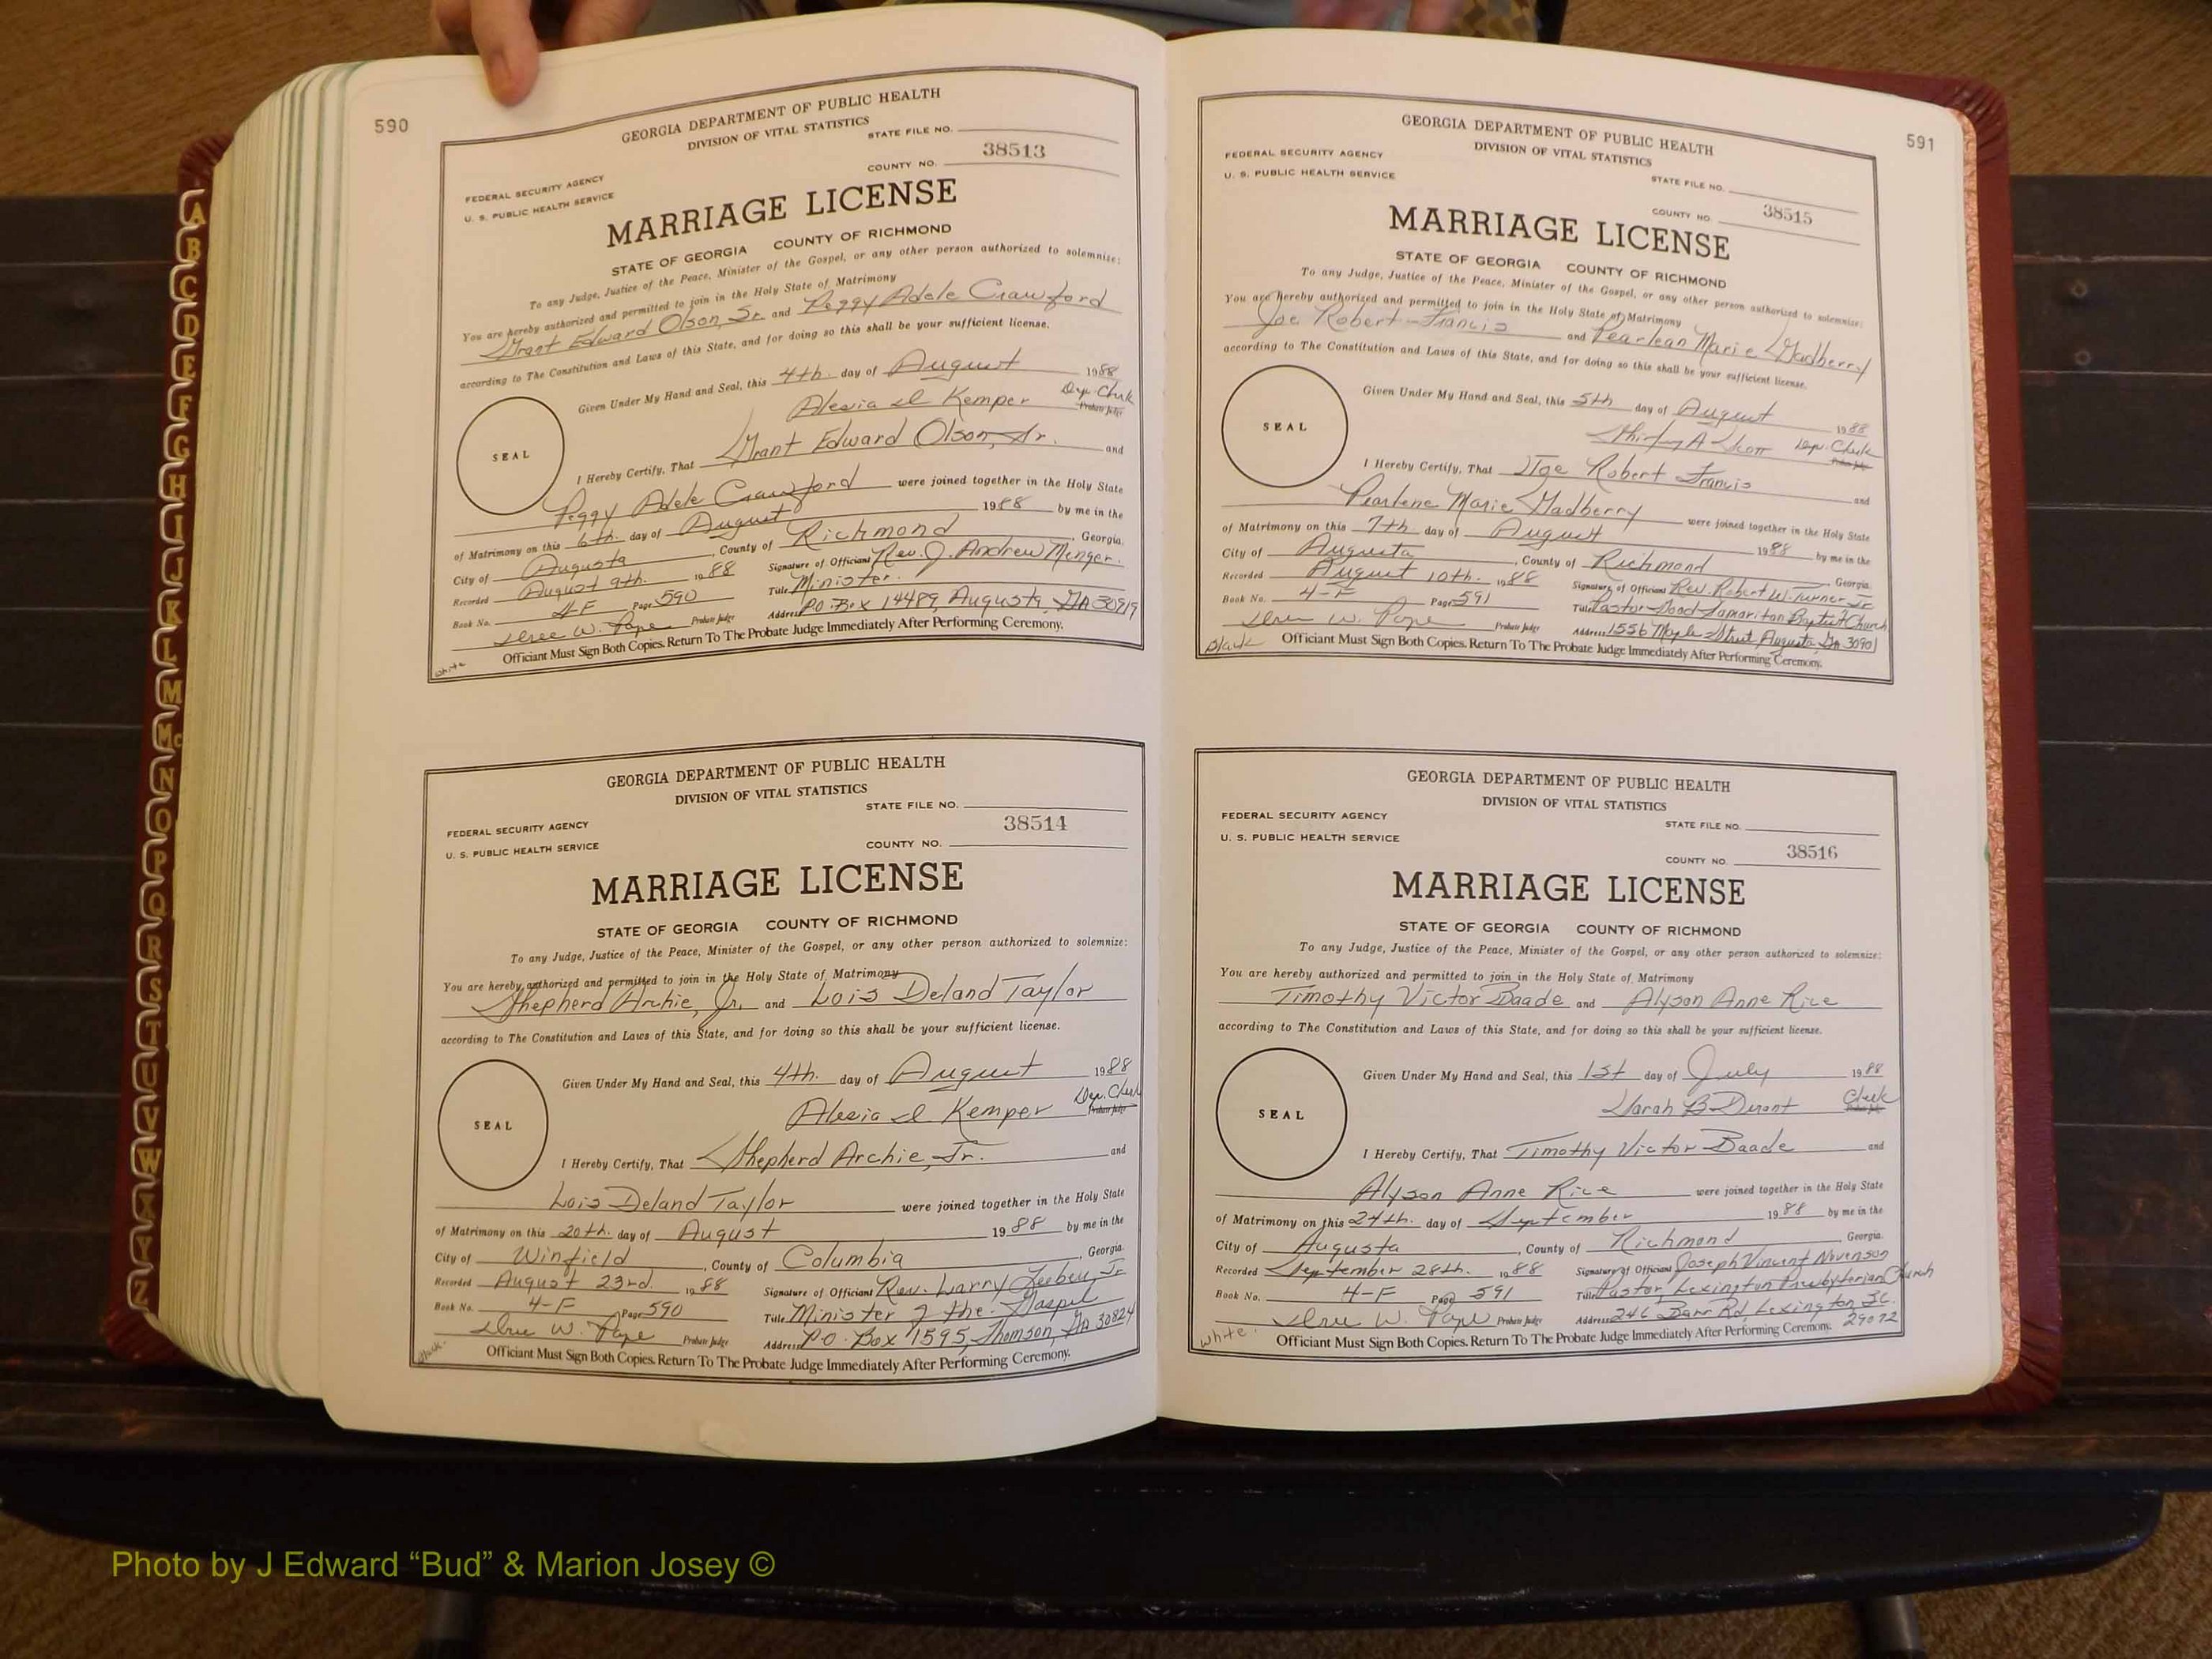 590
GEORGIA DEPARTMENT OF PUBLIC HEALTH
DIVISION OF VITAL STATISTICS
STATE FILE NO.
38513
COUNTY NO.
FEDERAL SECURITY AGENCY
U. S. PUBLIC HEALTH SERVICE
MARRIAGE LICENSE
STATE OF GEORGIA COUNTY OF RICHMOND
To any Judge, Justice of the Peace, Minister of the Gospel, or any other person authorized to solemnize:
You are hereby authorized and permitted to join in the Holy State of Matrimony
Grant Edward Olson, Sr. and Peggy Adele Crawford
according to The Constitution and Laws of this State, and for doing so this shall be your sufficient license.
Given Under My Hand and Seal, this 4th. day of August 1988
Alexia D Kemper Dep. Clerk
Probate Judge
SEAL
I Hereby Certify, That Grant Edward Olson, Sr. and
Peggy Adele Crawford were joined together in the Holy State
of Matrimony on this 6th. day of August 1988 by me in the
City of Augusta, County of Richmond, Georgia.
Recorded August 9th. 1988 Signature of Officiant Rev. J. Andrew Menger.
Book No. 4-F Page 590 Title Minister.
Probate Judge Address PO Box 14489, Augusta, GA 30919
Officiant Must Sign Both Copies. Return To The Probate Judge Immediately After Performing Ceremony.
white
GEORGIA DEPARTMENT OF PUBLIC HEALTH
DIVISION OF VITAL STATISTICS
STATE FILE NO.
38514
FEDERAL SECURITY AGENCY
U. S. PUBLIC HEALTH SERVICE
COUNTY NO.
MARRIAGE LICENSE
STATE OF GEORGIA COUNTY OF RICHMOND
To any Judge, Justice of the Peace, Minister of the Gospel, or any other person authorized to solemnize:
You are hereby authorized and permitted to join in the Holy State of Matrimony
Shepherd Archie, Jr. and Lois Deland Taylor
according to The Constitution and Laws of this State, and for doing so this shall be your sufficient license.
Given Under My Hand and Seal, this 4th. day of August 1988
Alexia D Kemper Dep. Clerk
Probate Judge
SEAL
I Hereby Certify, That Shepherd Archie, Jr. and
Lois Deland Taylor were joined together in the Holy State
of Matrimony on this 20th. day of August 1988 by me in the
City of Winfield, County of Columbia, Georgia.
Recorded August 23rd. 1988 Signature of Officiant Rev. Larry Jr
Book No. 4-F Page 590 Title Minister of the Gospel
Probate Judge Address P.O. Box 1595, Thomson, GA 30824
Officiant Must Sign Both Copies. Return To The Probate Judge Immediately After Performing Ceremony.
591
GEORGIA DEPARTMENT OF PUBLIC HEALTH
DIVISION OF VITAL STATISTICS
FEDERAL SECURITY AGENCY
U. S. PUBLIC HEALTH SERVICE
STATE FILE NO.
COUNTY NO. 38515
MARRIAGE LICENSE
STATE OF GEORGIA COUNTY OF RICHMOND
To any Judge, Justice of the Peace, Minister of the Gospel, or any other person authorized to solemnize:
You are hereby authorized and permitted to join in the Holy State of Matrimony
Joe Robert Francis and Pearlean Marie Gadberry
according to The Constitution and Laws of this State, and for doing so this shall be your sufficient license.
Given Under My Hand and Seal, this 5th day of August 1988
Shirley A Scott Dep. Clerk
SEAL
I Hereby Certify, That Joe Robert Francis and
Pearlene Marie Gadberry were joined together in the Holy State
of Matrimony on this 7th day of August 1988 by me in the
City of Augusta, County of Richmond, Georgia.
Recorded August 10th. 1988 Signature of Officiant Rev. Robert W. Turner Jr
Book No. 4-F Page 591 Title Pastor Good Samaritan Baptist Church
Probate Judge Address 1556 Maple Street Augusta, Ga 30901
Black Officiant Must Sign Both Copies. Return To The Probate Judge Immediately After Performing Ceremony.
GEORGIA DEPARTMENT OF PUBLIC HEALTH
DIVISION OF VITAL STATISTICS
FEDERAL SECURITY AGENCY
U. S. PUBLIC HEALTH SERVICE
STATE FILE NO.
COUNTY NO. 38516
MARRIAGE LICENSE
STATE OF GEORGIA COUNTY OF RICHMOND
To any Judge, Justice of the Peace, Minister of the Gospel, or any other person authorized to solemnize:
You are hereby authorized and permitted to join in the Holy State of Matrimony
Timothy Victor Baade and Alyson Anne Rice
according to The Constitution and Laws of this State, and for doing so this shall be your sufficient license.
Given Under My Hand and Seal, this 1st day of July 1988
Sarah B Durant Clerk
SEAL
I Hereby Certify, That Timothy Victor Baade and
Alyson Anne Rice were joined together in the Holy State
of Matrimony on this 24th. day of September 1988 by me in the
City of Augusta, County of Richmond, Georgia.
Recorded September 28th. 1988 Signature of Officiant Joseph Vincent Novenson
Book No. 4-F Page 591 Title Pastor, Lexington Presbyterian Church
Probate Judge Address 246 Barr Rd, Lexington, SC.
29072
white. Officiant Must Sign Both Copies. Return To The Probate Judge Immediately After Performing Ceremony.
A
B
C
D
E
F
G
H
I
J
K
L
M
Mc
N
O
P
Q
R
S
T
U
V
W
X
Y
Z
Photo by J Edward “Bud” & Marion Josey ©